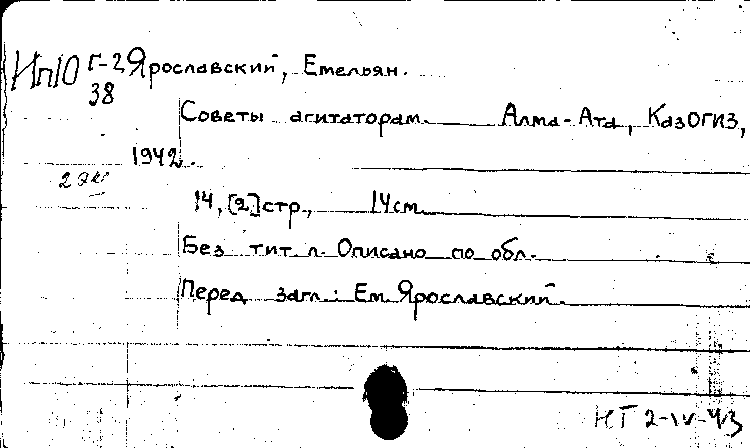 Ип10 Г-2 Ярославский, Емельян.
38
Советы агитаторам. Алма-Ата, КазОГИЗ,
1942.
2 экз
14, [2] стр., 14 см.
Без тит. л. Описано по обл.
Перед загл.: Ем. Ярославский.
НГ 2-IV-43